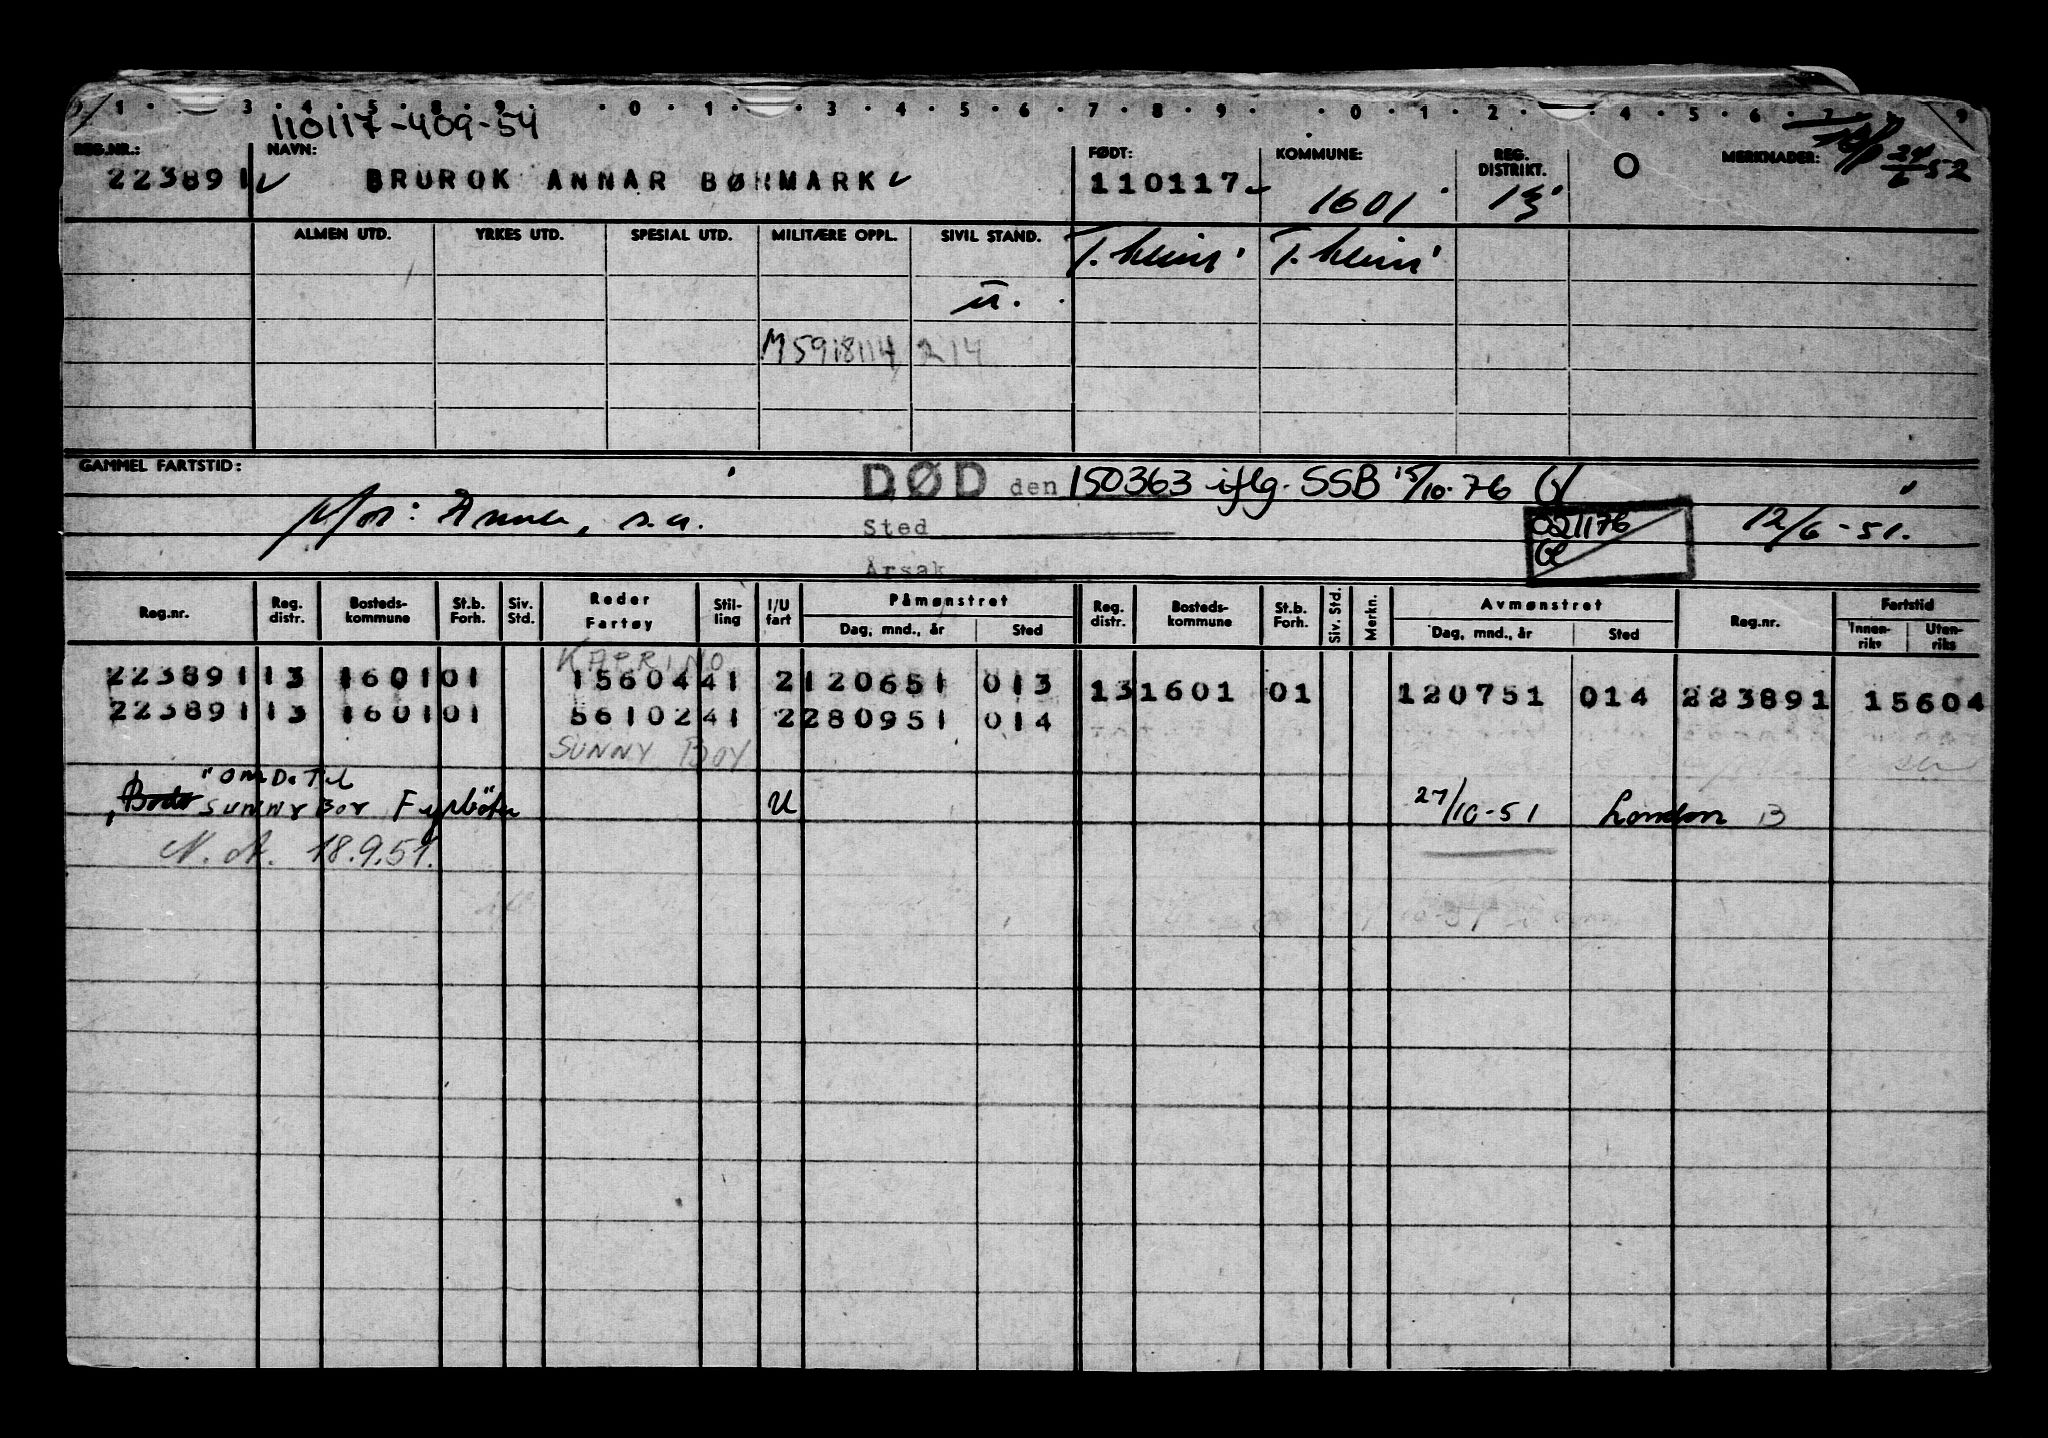 1 3 4 5 8 9 0 1 3 4 5 6 7 8 9 0 1 2 4 5 6 7 9
110117-409-54
REG.NR.: NAVN: FØDT: KOMMUNE: REG. DISTRIKT. MERKNADER: 24/6 52
223891 BRUROK ANNAR BØHMARK 110117 1601 13
ALMEN UTD. YRKES UTD. SPESIAL UTD. MILITÆRE OPPL. SIVIL STAND. T.heim T.heim
u.
M5918114 214
GAMMEL FARTSTID:
DØD den 150363 iflg. SSB 15/10-76
Sted 021176 12/6-51.
Årsak
Reg.nr. Reg. distr. Bosteds-kommune St.b. Forh. Siv. Std. Reder Fartøy Stil-ling I/U fart Påmønstret Dag, mnd., år Sted Reg. distr. Bosteds-kommune St.b. Forh. Siv. Std. Merkn. Avmønstret Dag, mnd., år Sted Reg.nr. Fartstid Innen-riks Uten-riks
KAPRINO
223891 13 1601 01 15604 41 2 120651 013 13 1601 01 120751 014 223891 15604
223891 13 1601 01 56102 41 2 280951 014
SUNNY BOY
"OmDøTil
Bodø SUNNY BOY Fyrbøter U 27/10-51 London B
N.A. 18.9.51.